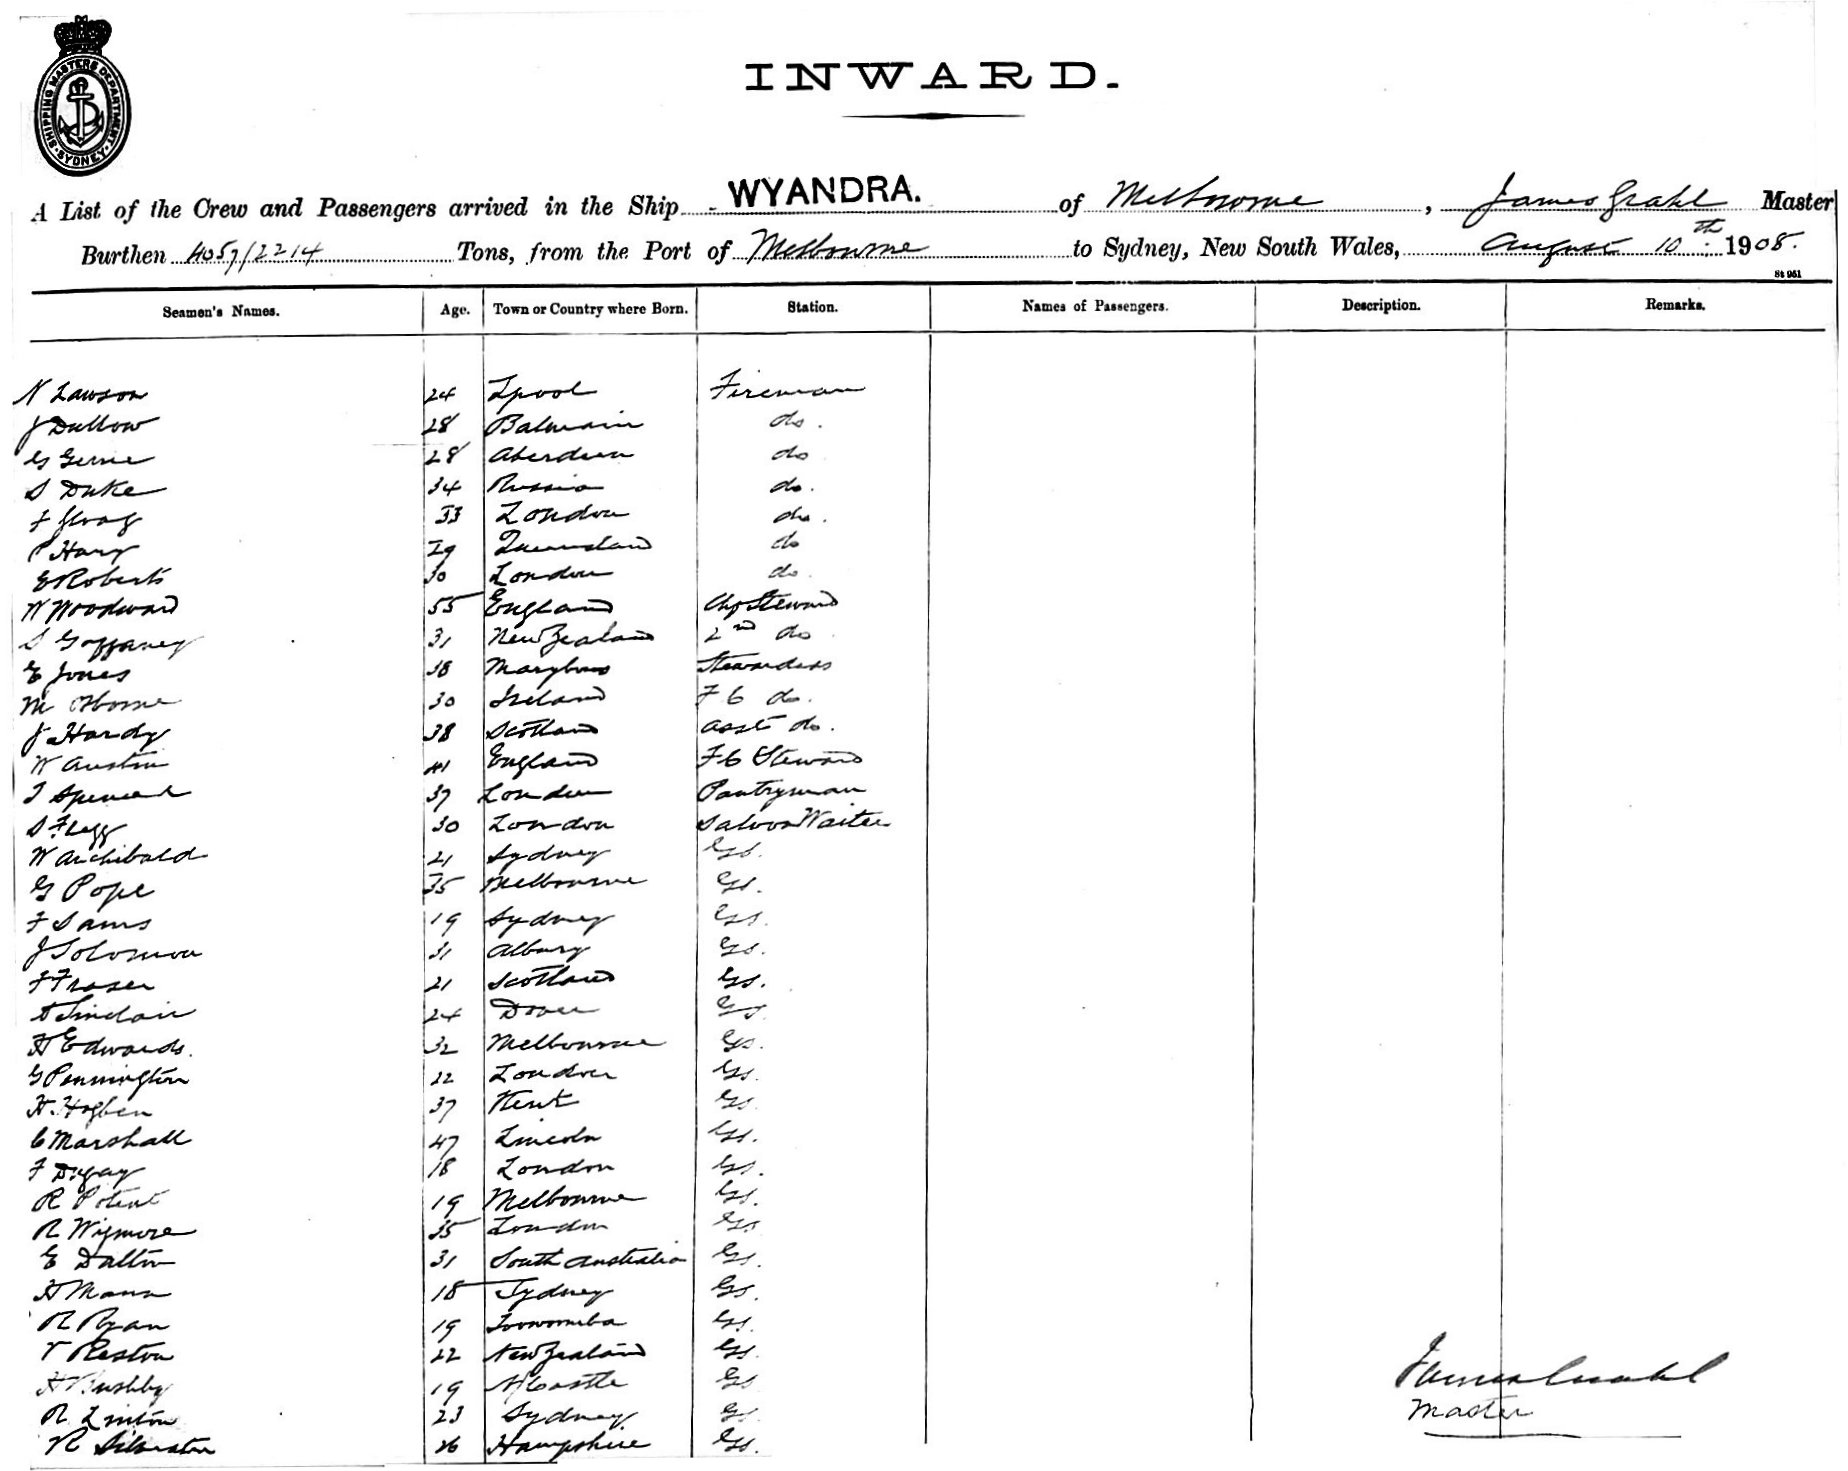 SHIPPING MASTERS DEPARTMENT · SYDNEY ·
INWARD.
A List of the Crew and Passengers arrived in the Ship WYANDRA. of Melbourne, James Grahl Master
Burthen 4057/2214 Tons, from the Port of Melbourne to Sydney, New South Wales, August 10th 1908.
St 951
Seamen's Names. Age. Town or Country where Born. Station. Names of Passengers. Description. Remarks.
N Lawson 24 Lpool Fireman
J Dullow 28 Balmain do.
G Gerrie 28 Aberdeen do
S Duke 34 Russia do.
F 33 London do.
P Hary 29 Queensland do
E Roberts 30 London do.
W Woodward 55 England Chf Steward
S Gaffaney 31 New Zealand 2nd do
E Jones 38 Maryboro Stewardess
M Osborne 30 Ireland F C do.
J Hardy 38 Scotland asst do.
W Austin 41 England F C Steward
T Spencer 37 London Pantryman
S F Legg 30 London Saloon Waiter
W Archibald 21 Sydney GS.
G Pope 35 Melbourne GS.
F Sams 19 Sydney GS.
J Solomon 31 Albury GS.
F Fraser 21 Scotland GS.
A Sinclair 24 Dover GS
H Edwards. 32 Melbourne GS.
G Pennington 22 London GS.
H. Hogben 37 Kent GS
C Marshall 47 Lincoln GS.
F 18 London GS.
R Potent 19 Melbourne GS.
R Wigmore 35 London GS
E Dalton 31 South Australia GS.
H Mann 18 Sydney GS.
R Ryan 19 Toowoomba GS.
V Reston 22 New Zealand GS.
H Bushby 19 N/Castle GS
R Linton 23 Sydney GS
R Silverton 26 Hampshire GS.
James Grahl
Master